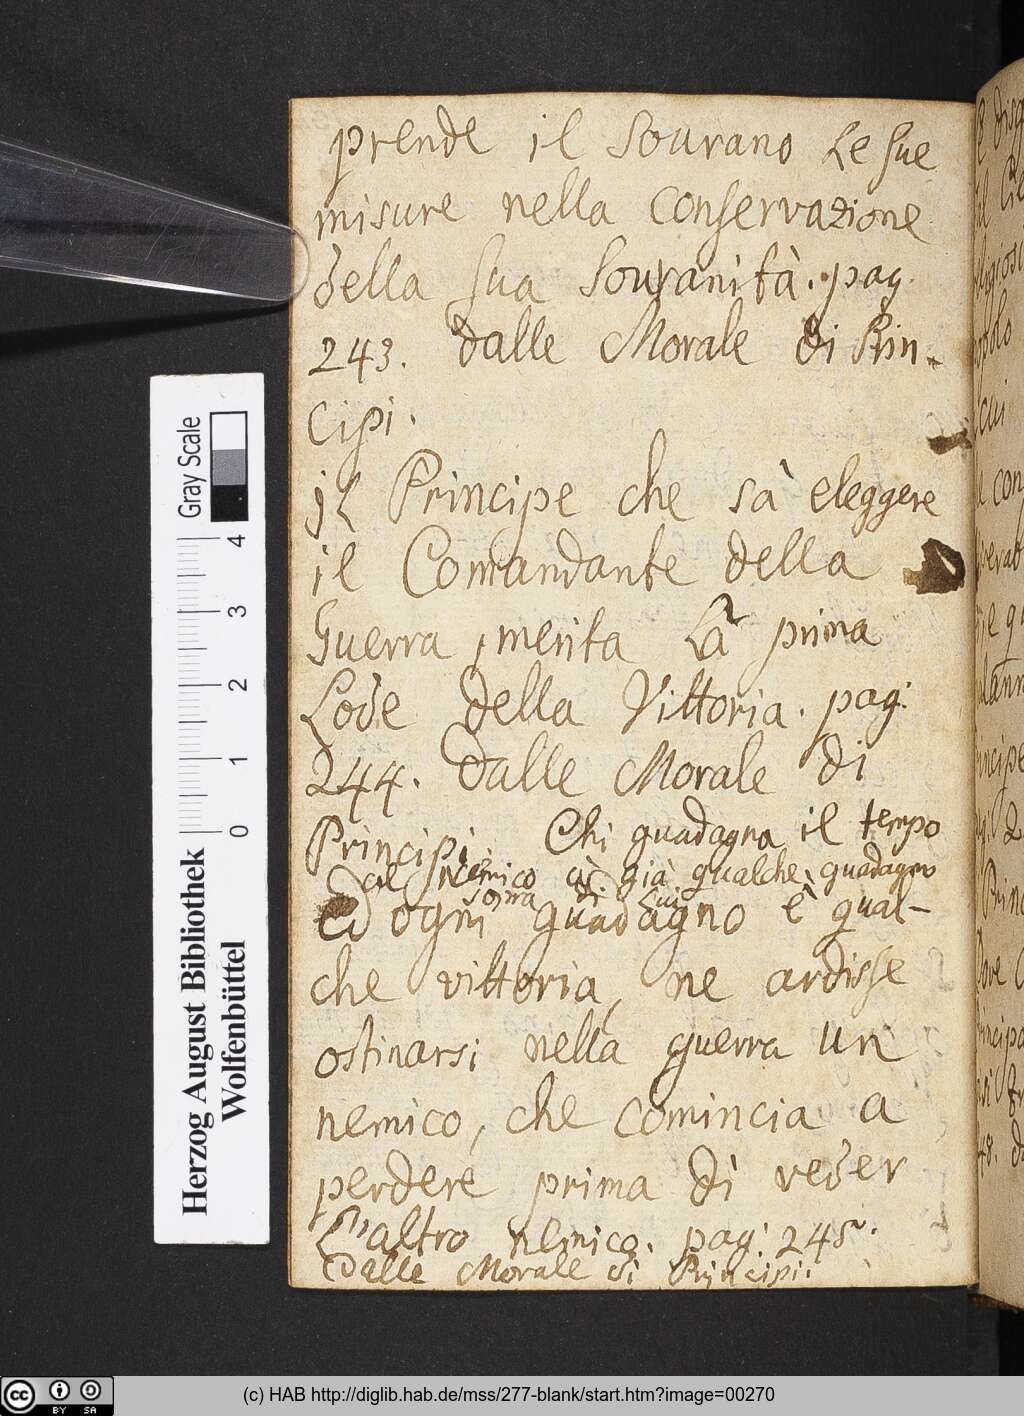 prende il Sourano Le sue
misure nella conservazione
della sua Souranità. pag.
243. dalle Morale di Prin-
cipi.
jl Principe che sà eleggere
il Comandante della
Guerra, merita La prima
Lode della Vittoria. pag.
244. dalle Morale di
Principi. Chi guadagna il tempo
al nemico già qualche guadagno
sopra di Lui.
Ed ogni guadagno è qual-
che vittoria, ne ardisse
ostinarsi nella guerra un
nemico, che comincia a
perdere prima di veder
L'altro nemico. pag. 245.
Dalle Morale di Principi.
Gray Scale
0 1 2 3 4
Herzog August Bibliothek
Wolfenbüttel
(c) HAB http://diglib.hab.de/mss/277-blank/start.htm?image=00270
cc BY SA